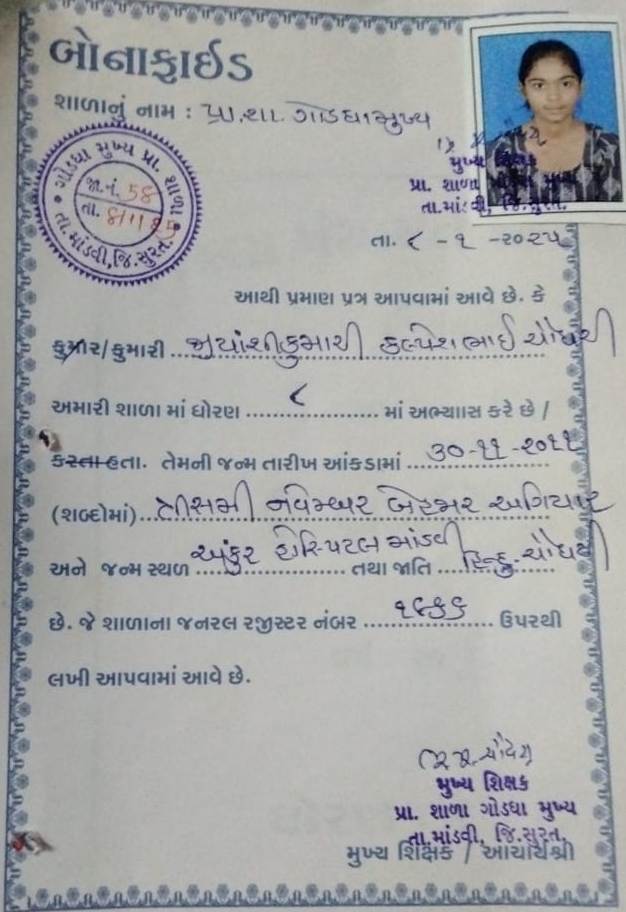 બોનાફાઈડ
શાળાનું નામ : પ્રા.શા. ગોડધા મુખ્ય
મુખ્ય શિક્ષક
પ્રા. શાળા ગોડધા મુખ્ય
તા.માંડવી, જિ.સુરત.
ગોડધા મુખ્ય પ્રા. શાળા
જા.નં. 58
તા. 8/1/25
તા.માંડવી, જિ.સુરત.
તા. ૮ - ૧ - ૨૦૨૫
આથી પ્રમાણ પત્ર આપવામાં આવે છે. કે
કુમાર/કુમારી જીયાંશીકુમારી કલ્પેશભાઈ ચૌધરી
અમારી શાળા માં ધોરણ ૮ માં અભ્યાસ કરે છે /
કરતા હતા. તેમની જન્મ તારીખ આંકડામાં ૩૦-૧૧-૨૦૧૧
(શબ્દોમાં) ત્રીસમી નવેમ્બર બેહજાર અગિયાર
અને જન્મ સ્થળ અંકુર હોસ્પિટલ માંડવી તથા જાતિ હિન્દુ ચૌધરી
છે. જે શાળાના જનરલ રજીસ્ટર નંબર ઉપરથી
લખી આપવામાં આવે છે.
મુખ્ય શિક્ષક
પ્રા. શાળા ગોડધા મુખ્ય
તા.માંડવી, જિ.સુરત.
મુખ્ય શિક્ષક / આચાર્યશ્રી